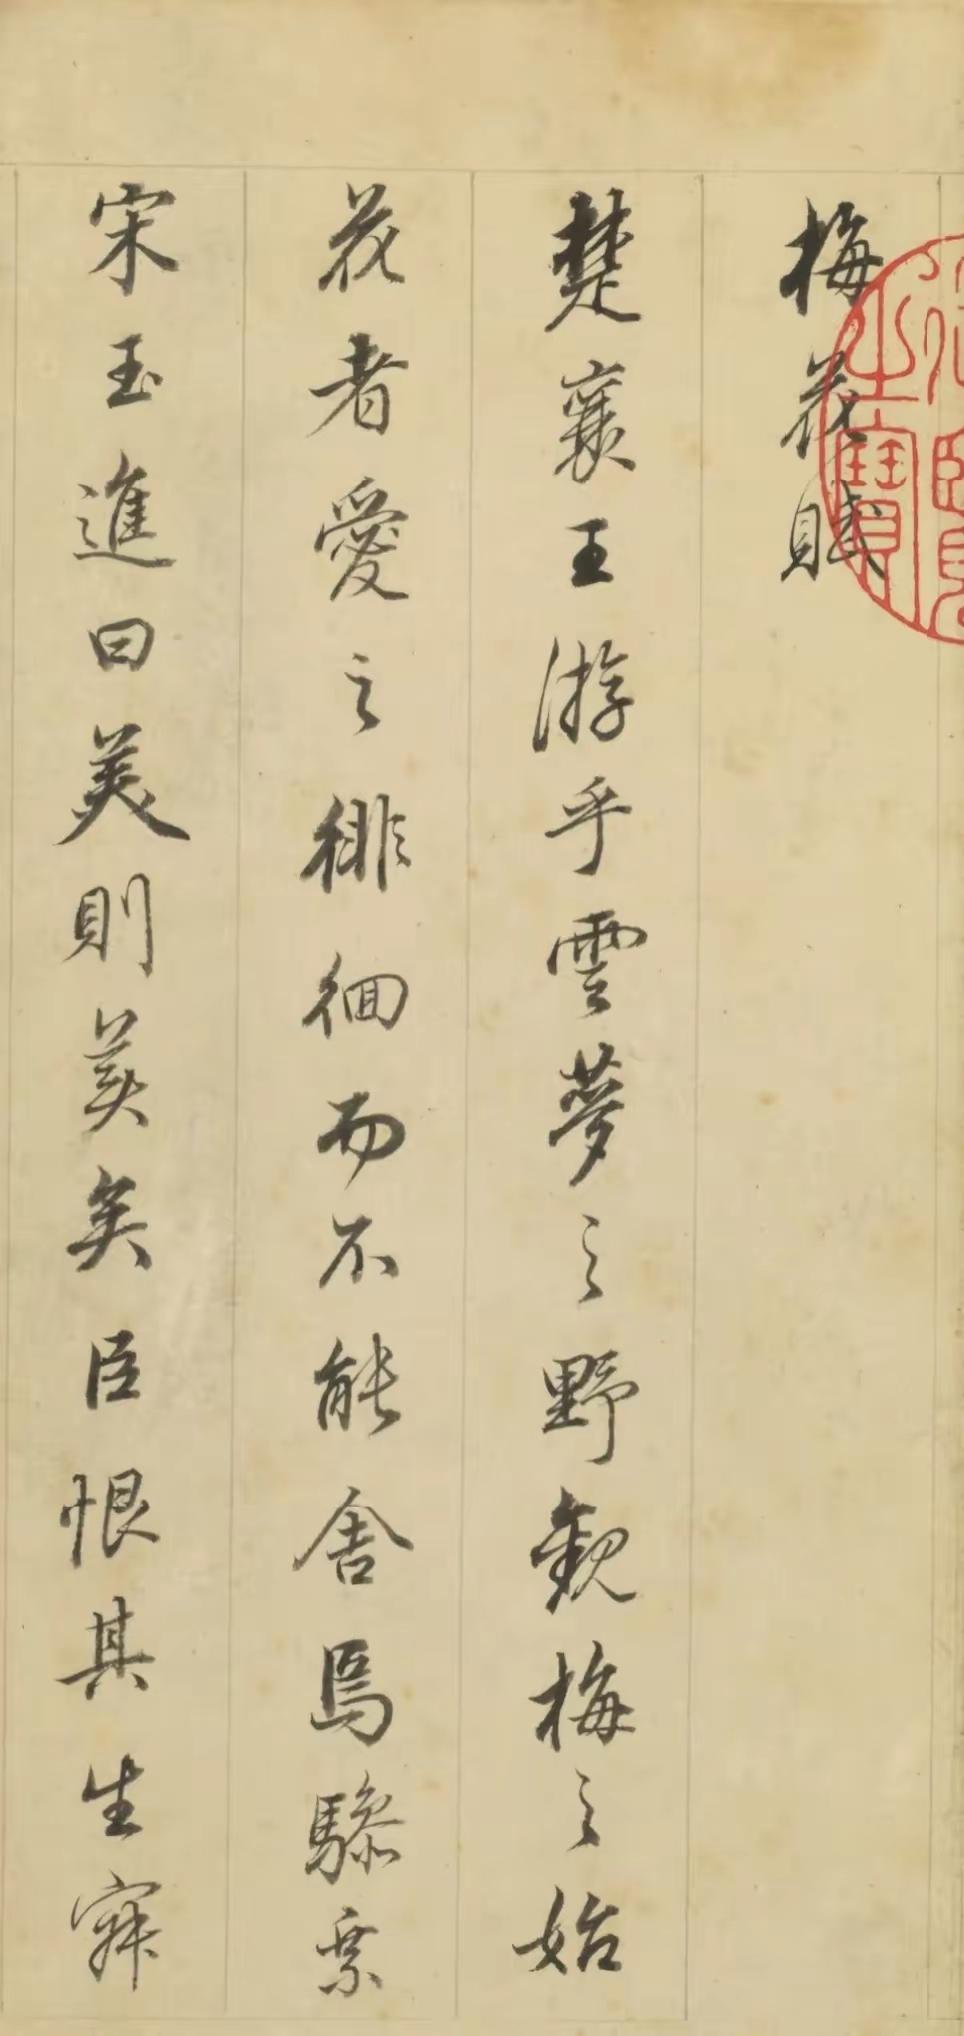 梅花賦
楚襄王游乎雲夢之野觀梅之始
花者愛之徘徊而不能舍焉驂乗
宋玉進曰美則美矣臣恨其生寂
之寶